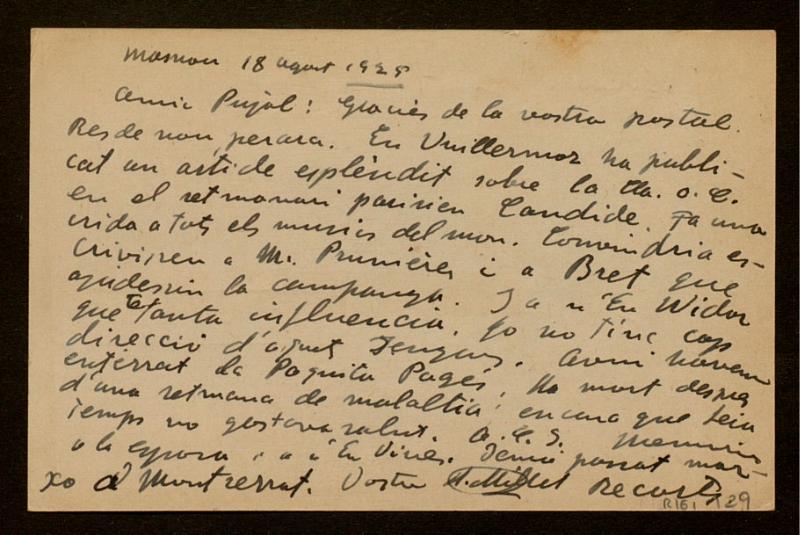 Masnou 18 agost 1929
Amic Pujol: Gracies de la vostra postal.
Res de nou perara. En Vuillermoz ha publi-
cat un article esplèndit sobre la tta. o. C.
en el setmanari parisien Candide. Fa una
crida a tots els musics del mon. Convindria es-
crivissen a Mr. Prunières i a Bret que
ajudessin la campanya. I a n'En Widor
que te tanta influencia. Jo no tinc cap
direcció d'aquets senyors. Avui havem
enterrat la Paquita Pagés. Ha mort despres
d'una setmana de malaltia; encara que feia
temps no gastava salut. a. C. S. Memories
a la esposa i a n'En Vives. Demá passat mar-
xo a Montserrat. Vostre F. Millet Recorts
R161 129